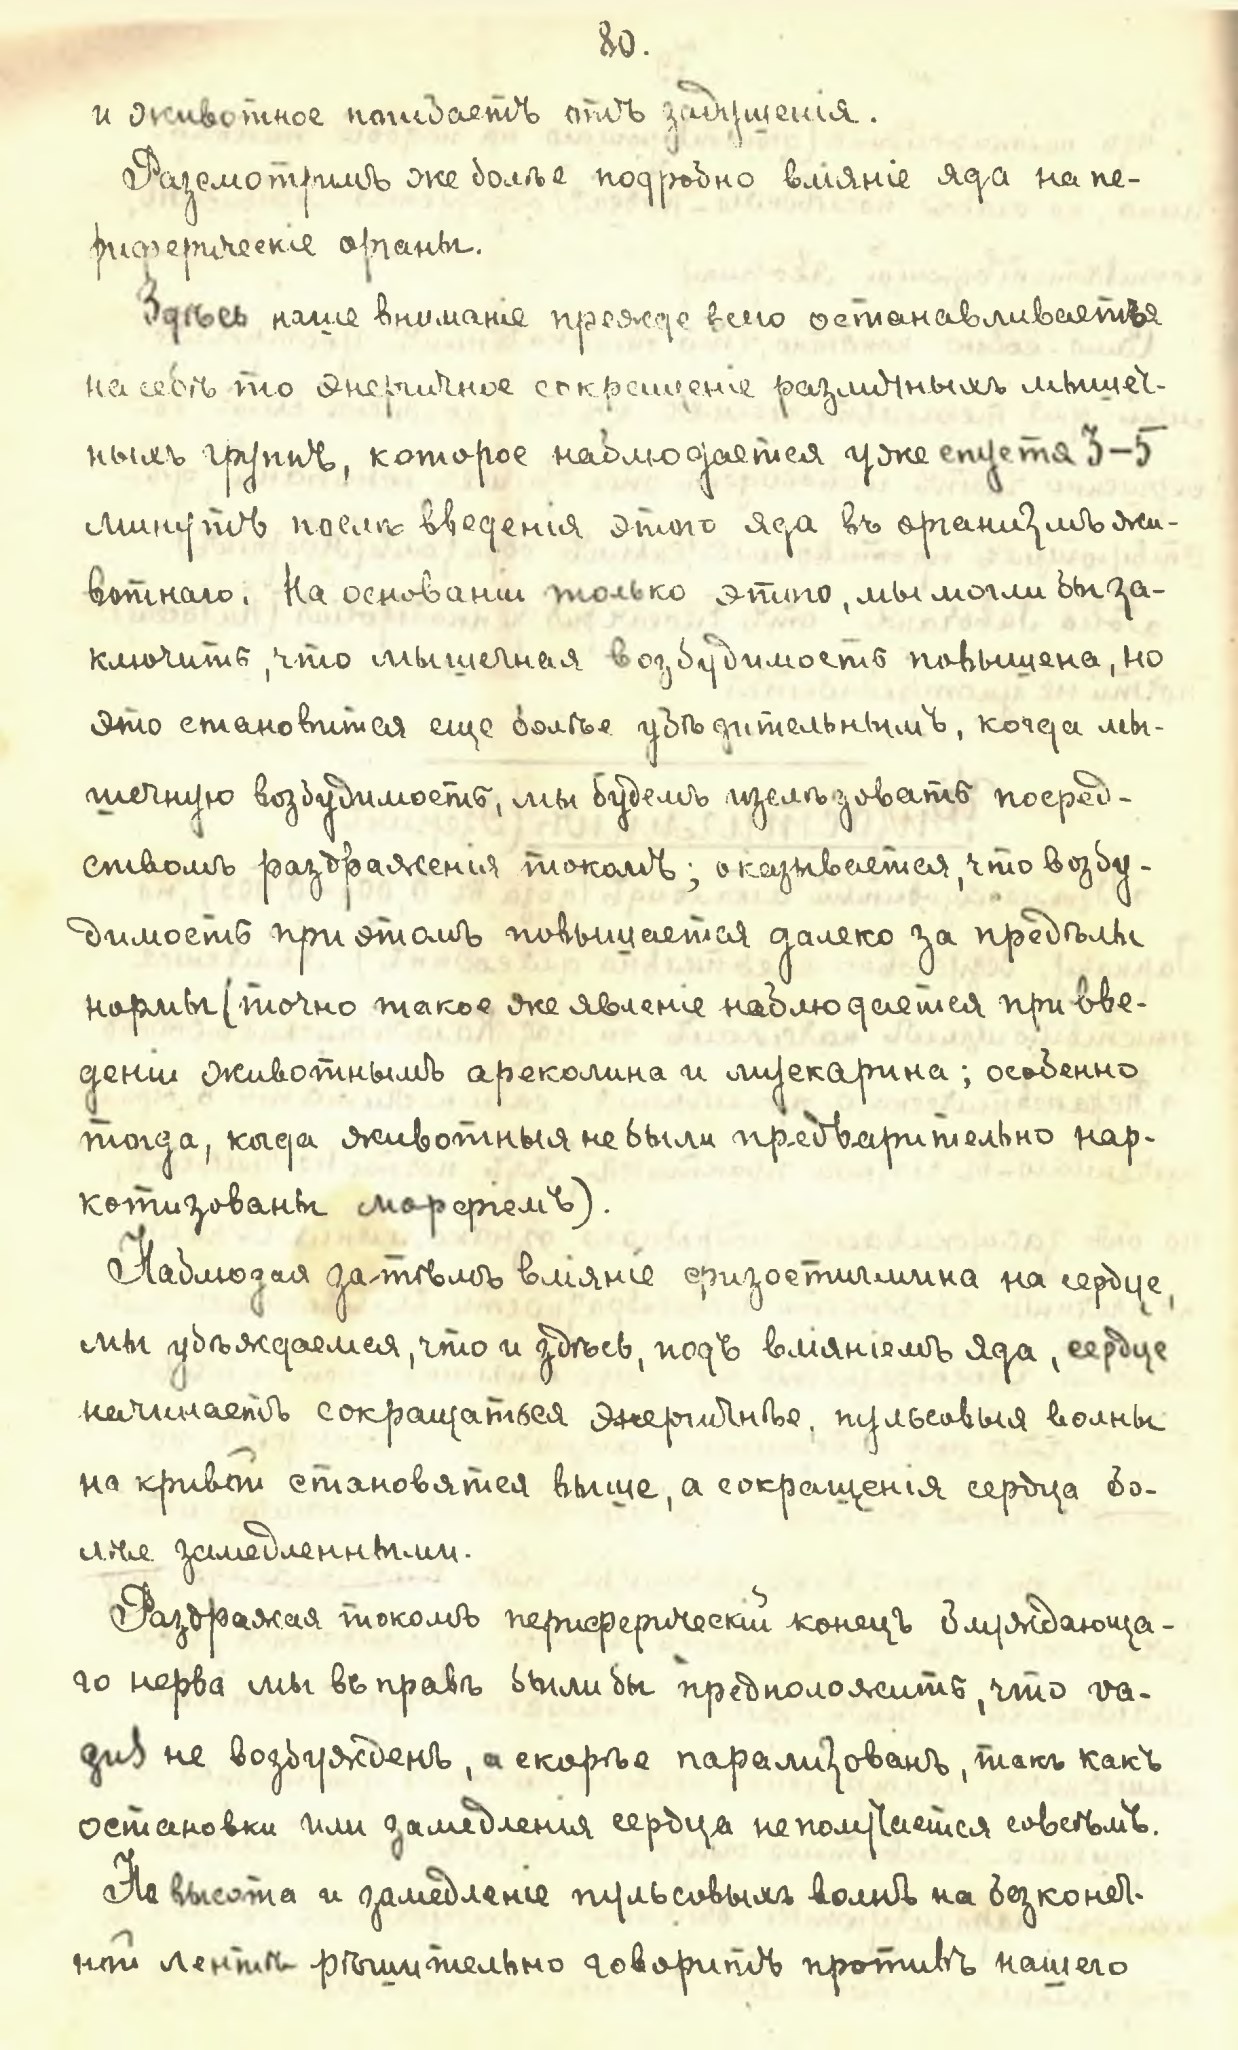 80.
и животное погибаетъ отъ задушенія.
Разсмотримъ же болѣе подробно вліяніе яда на пе-
риферическіе органы.
Здѣсь наше вниманіе прежде всего останавливаетъ
на себѣ то энергичное сокращеніе различныхъ мышеч-
ныхъ группъ, которое наблюдается уже спустя 3–5
минутъ послѣ введенія этого яда въ организмъ жи-
вотнаго. На основаніи только этого, мы могли бы за-
ключить, что мышечная возбудимость повышена, но
это становится еще болѣе убѣдительнымъ, когда мы-
шечную возбудимость, мы будемъ изслѣдовать посред-
ствомъ раздраженія токомъ; оказывается, что возбу-
димость при этомъ повышается далеко за предѣлы
нормы (точно такое же явленіе наблюдается при вве-
деніи животнымъ ареколина и мускарина; особенно
тогда, когда животныя не были предварительно нар-
котизованы морфіемъ).
Наблюдая за-тѣмъ вліяніе физостигмина на сердце,
мы убѣждаемся, что и здѣсь, подъ вліяніемъ яда, сердце
начинаетъ сокращаться энергичнѣе, пульсовыя волны
на кривой становятся выше, а сокращенія сердца бо-
лѣе замедленными.
Раздражая токомъ периферическій конецъ блуждающа-
го нерва мы въ правѣ были бы предположить, что va-
gus не возбужденъ, а скорѣе парализованъ, такъ какъ
остановки или замедленія сердца не получается совсѣмъ.
Но высота и замедленіе пульсовыхъ волнъ на безконеч-
ной лентѣ рѣшительно говоритъ противъ нашего